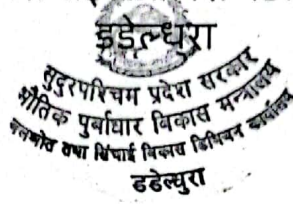 डडेल्धुरा
सुदुरपश्चिम प्रदेश सरकार
भौतिक पुर्बाधार बिकास मन्त्रालय
जलश्रोत तथा सिंचाई बिकास डिभिजन कार्यालय
डडेल्धुरा